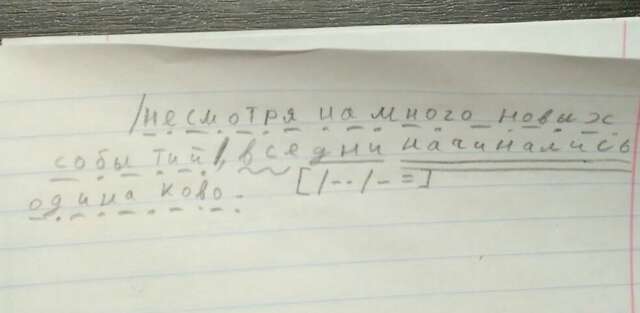 /несмотря на много новых
событий/, все дни начинались
одинаково. [/-·/- =]